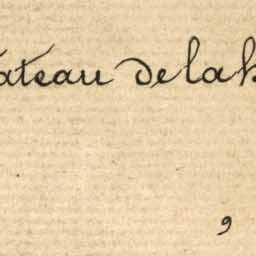 ateau de lab
9